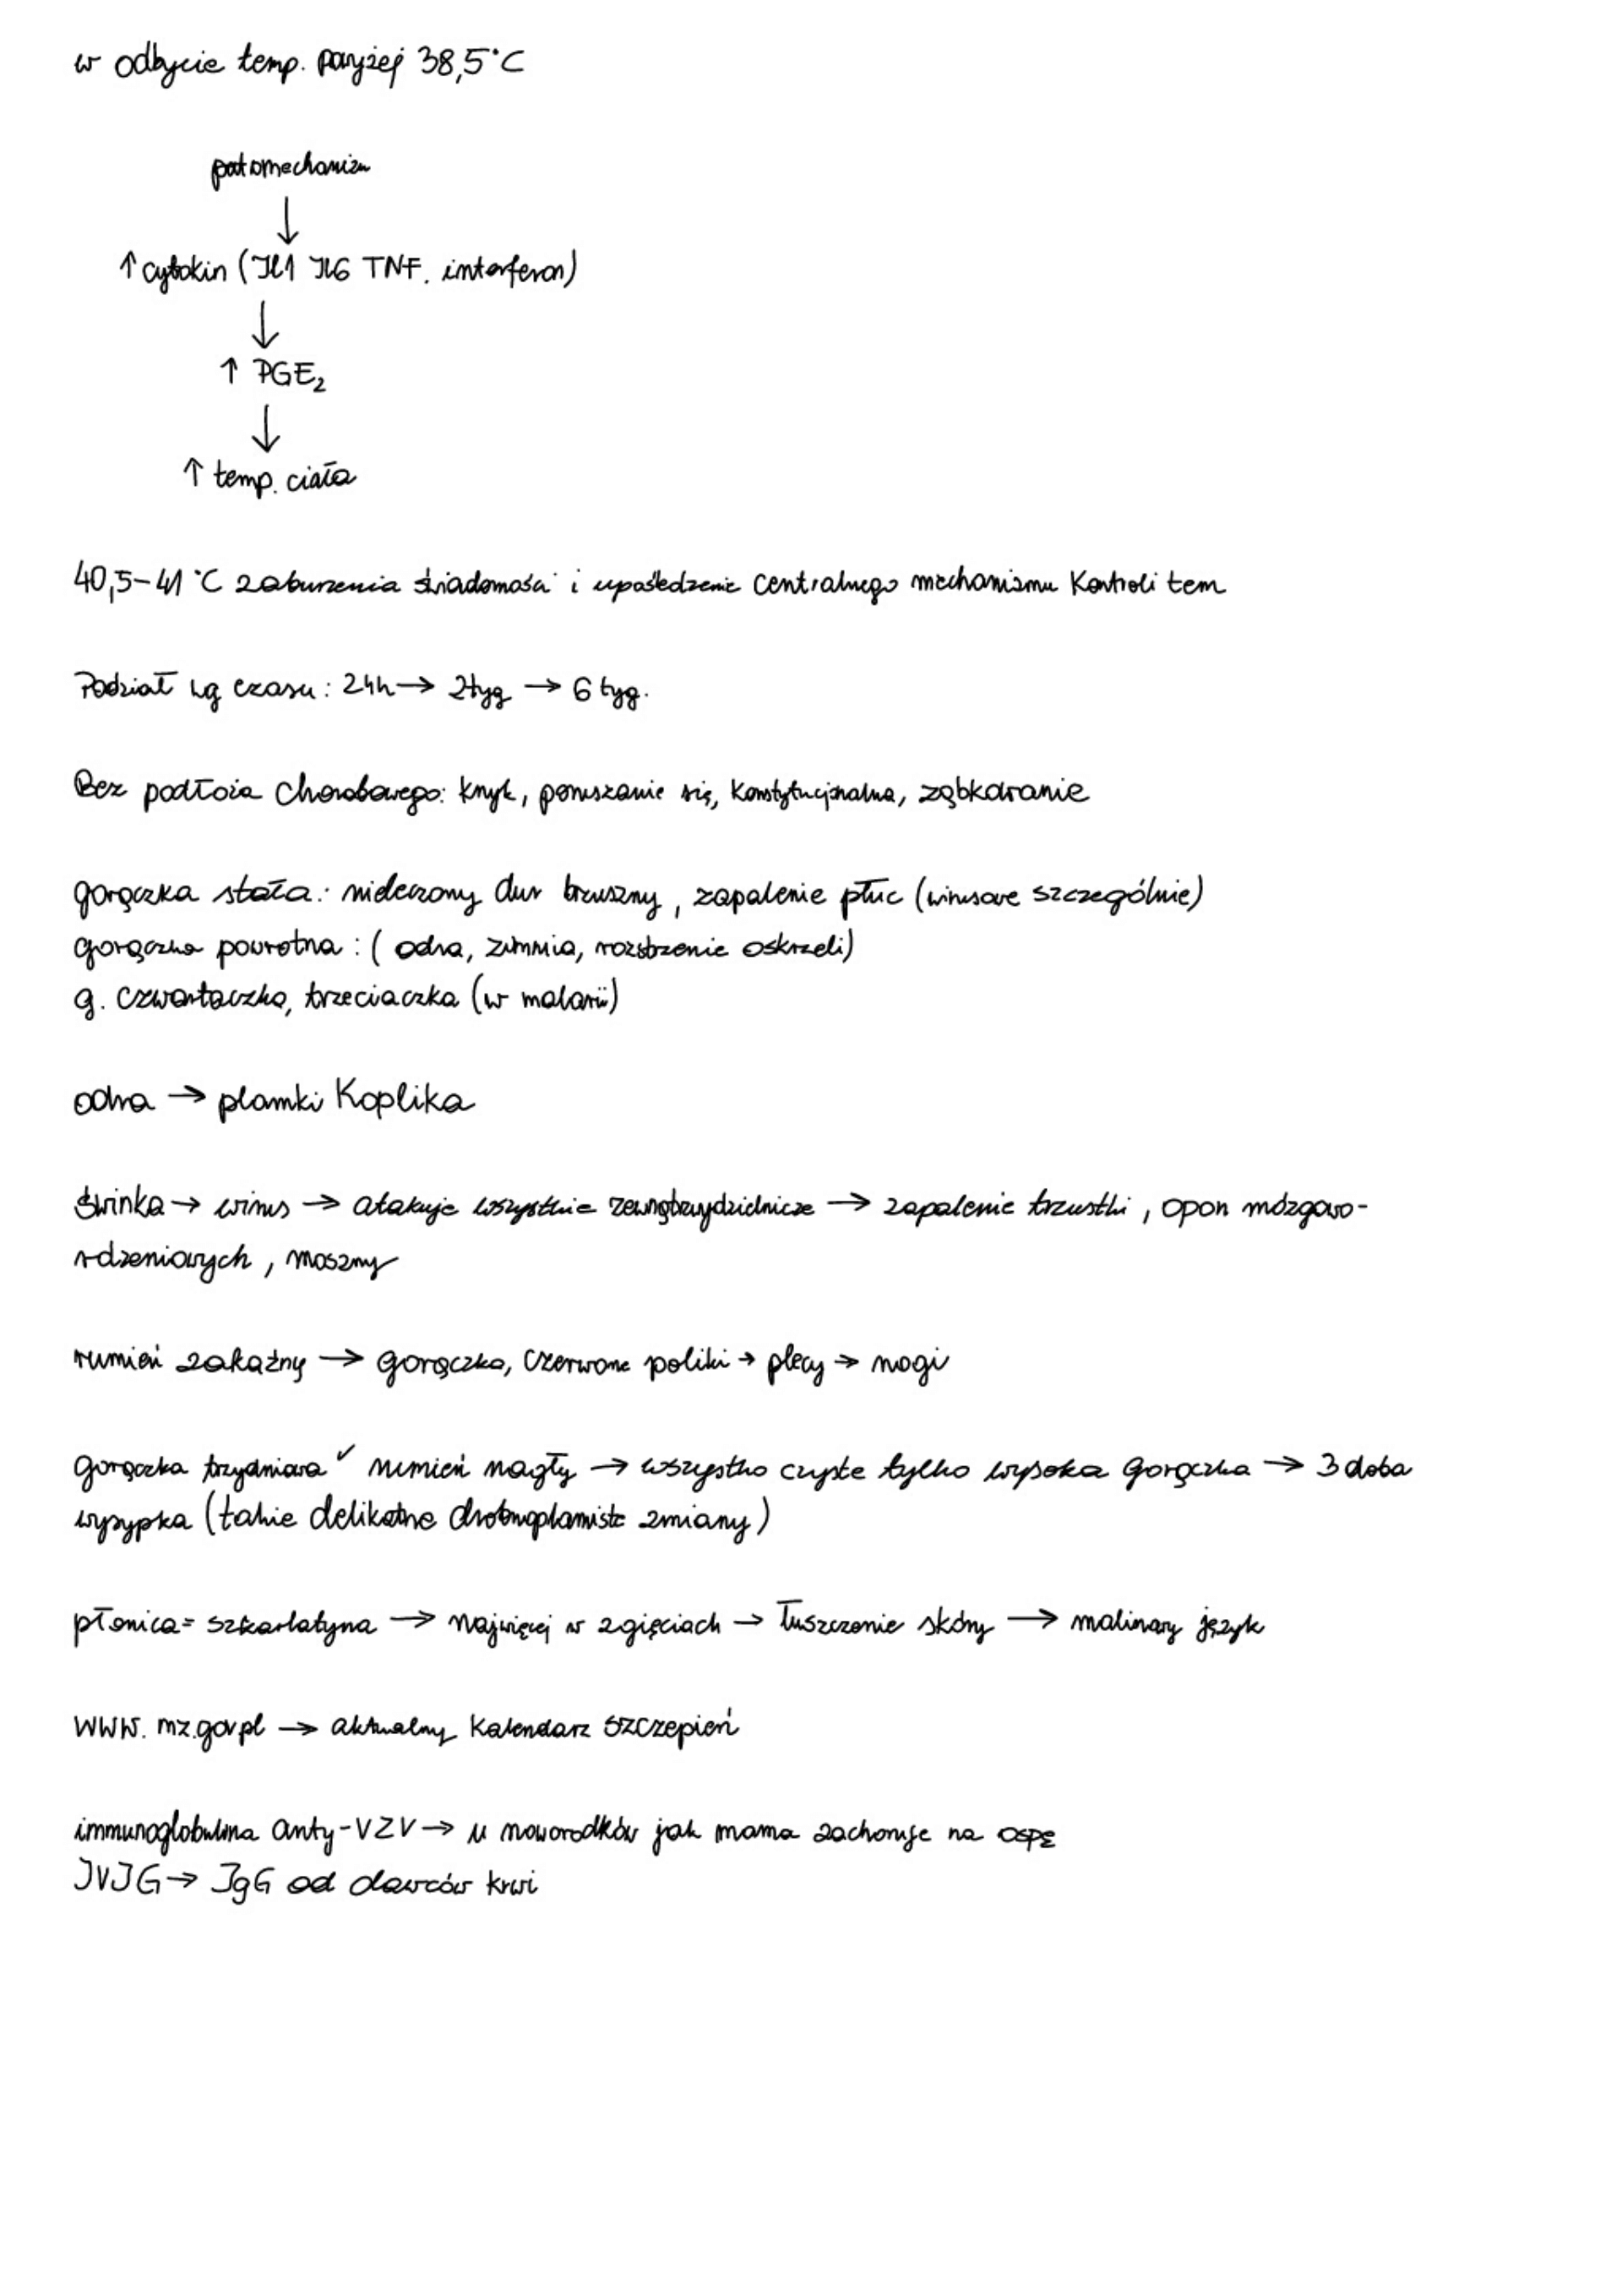 w odbycie temp. powyżej 38,5°C
patomechanizm
↓
↑ cytokin (Il1 Il6 TNF. interferon)
↓
↑ PGE2
↓
↑ temp. ciała
40,5-41 °C zaburzenia świadomości i upośledzenie centralnego mechanizmu kontroli tem
Podział wg czasu: 24h → 2tyg → 6 tyg.
Bez podłoża chorobowego: krzyk, poruszanie się, konstytucjonalna, ząbkowanie
gorączka stała: nieleczony dur brzuszny, zapalenie płuc (wirusowe szczególnie)
gorączka powrotna: (odra, zimnia, rozstrzenie oskrzeli)
g. czwartaczka, trzeciaczka (w malarii)
odra → plamki Koplika
świnka → wirus → atakuje wszystkie zewnątrzwydzielnicze → zapalenie trzustki, opon mózgowo-
rdzeniowych, moszny
rumień zakaźny → gorączka, czerwone poliki → plecy → nogi
gorączka trzydniowa ✓ rumień nagły → wszystko czyste tylko wysoka gorączka → 3 doba
wysypka (takie delikatne drobnoplamiste zmiany)
płonica = szkarlatyna → najwięcej w zgięciach → łuszczenie skóry → malinowy język
www.mz.gov.pl → aktualny kalendarz szczepień
immunoglobulina anty-VZV → u noworodków jak mama zachoruje na ospę
IVIG → IgG od dawców krwi